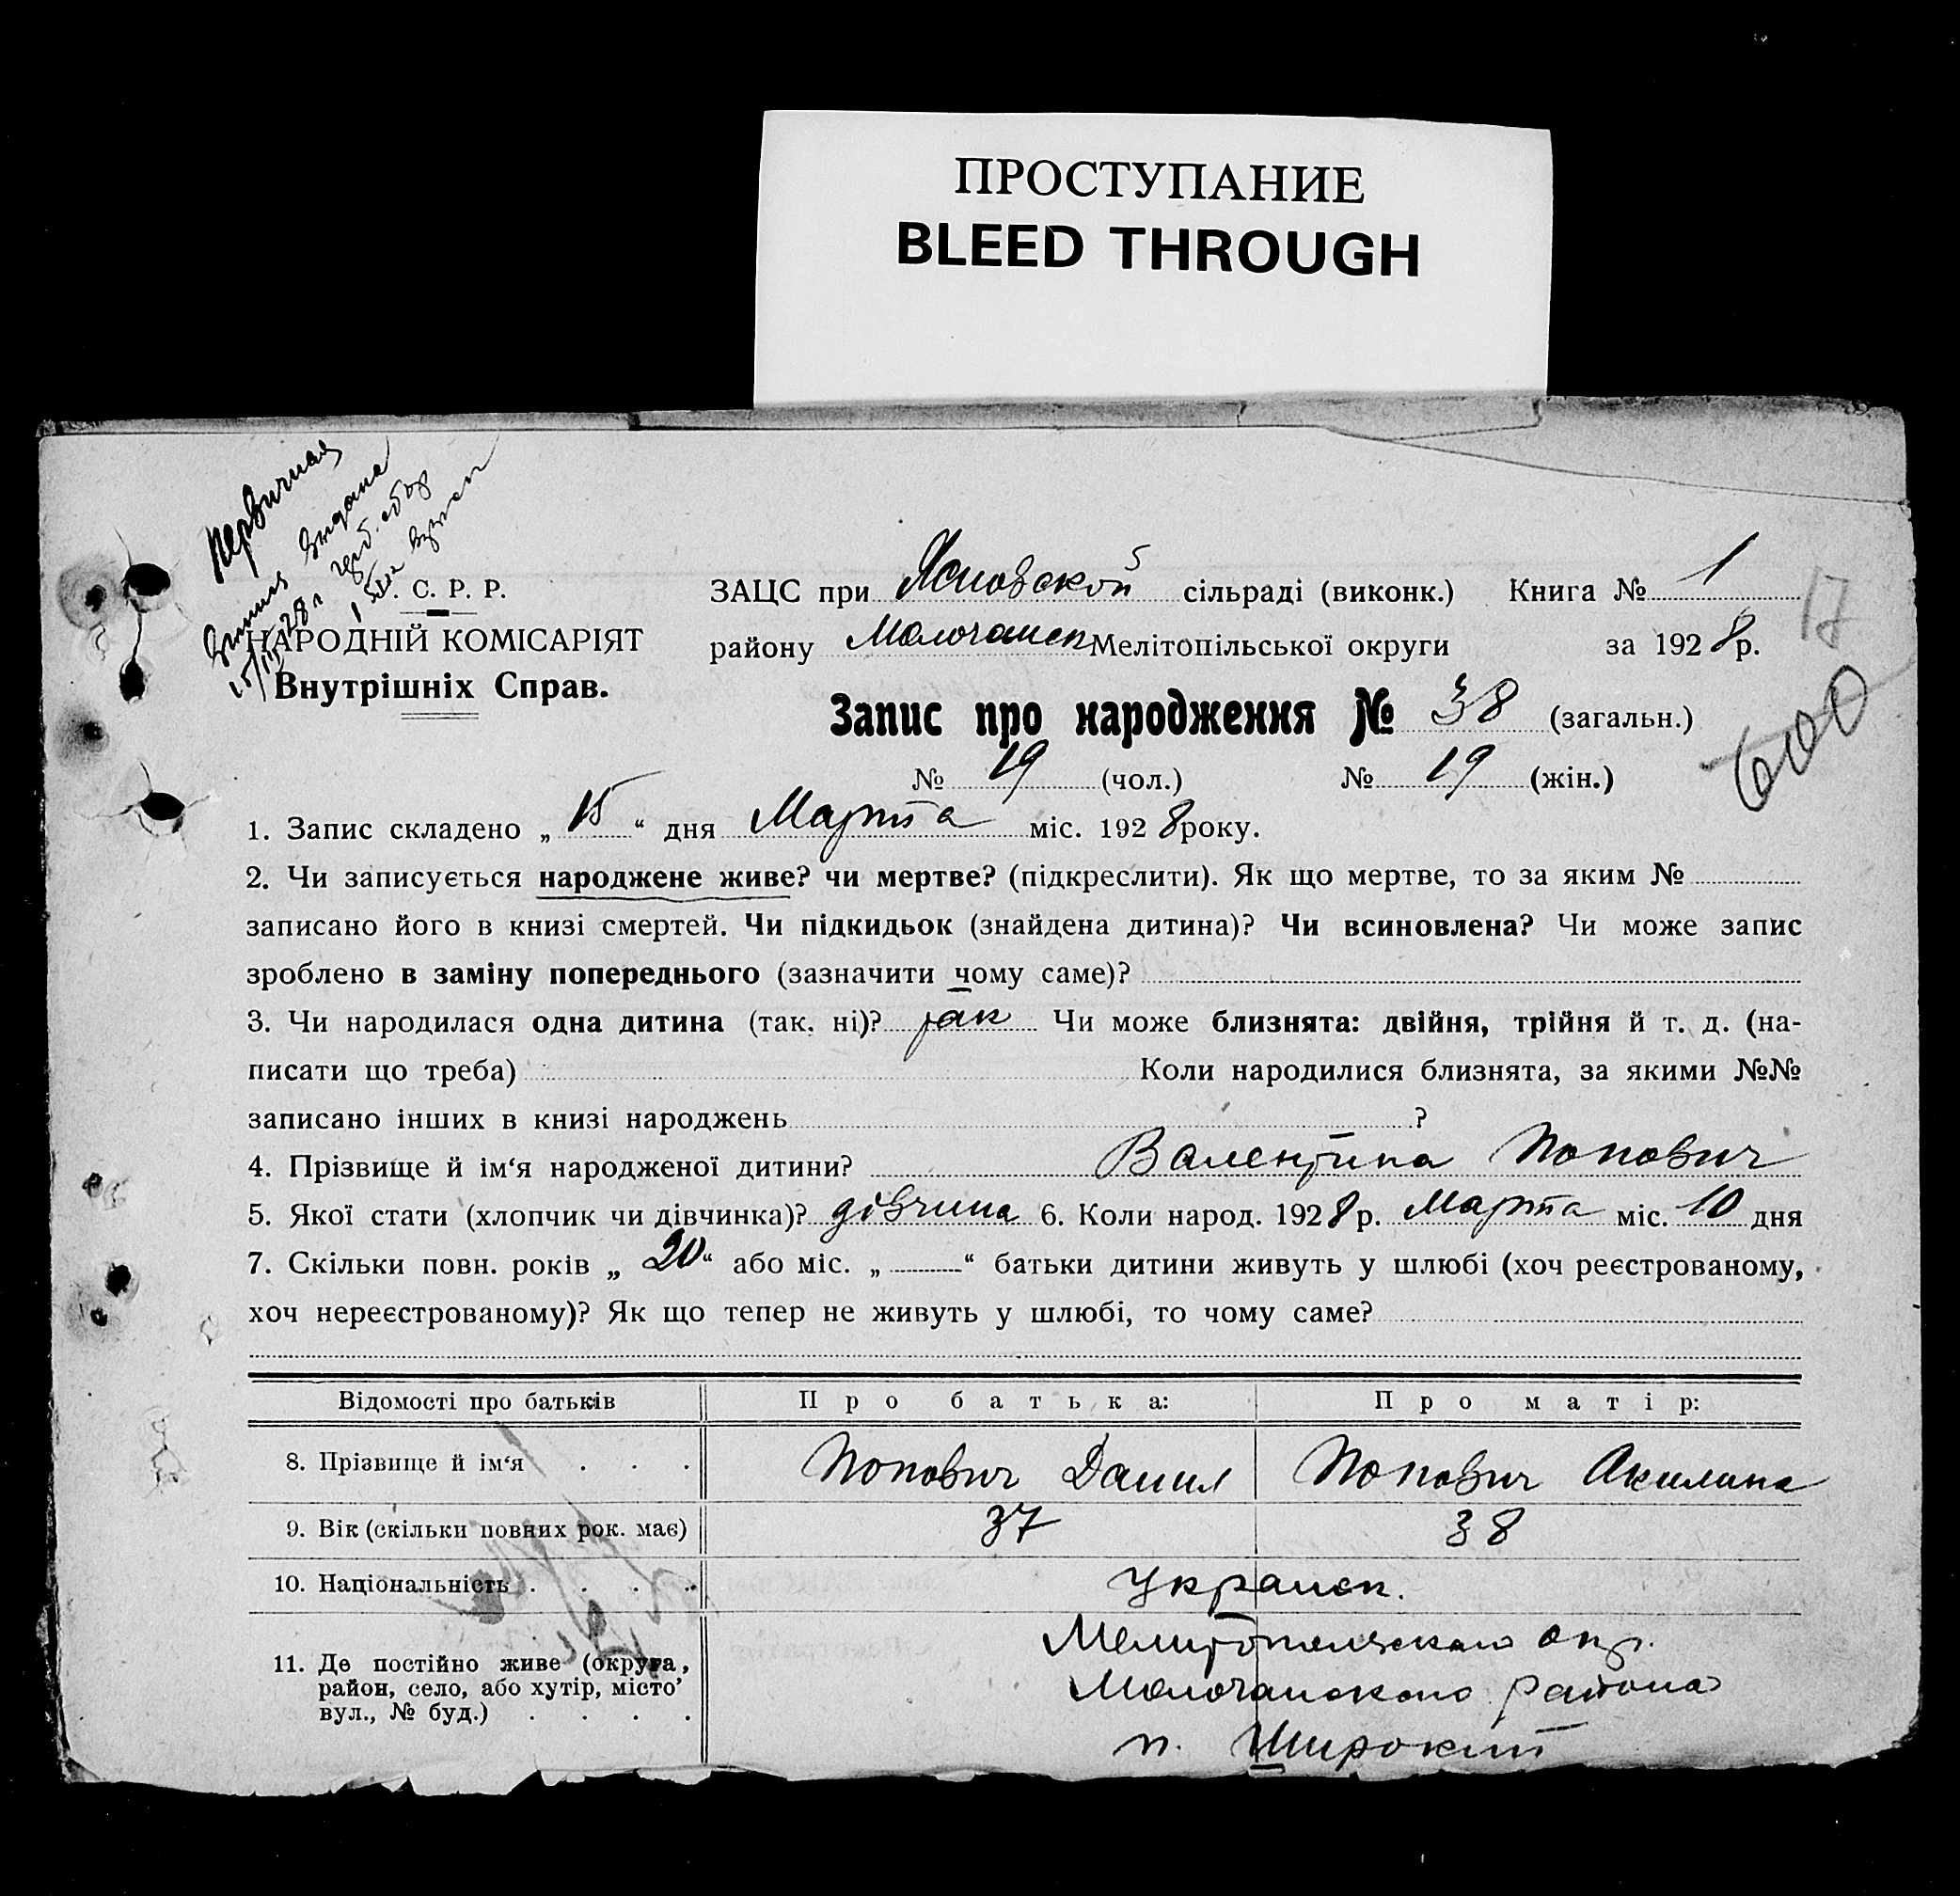 ПРОСТУПАНИЕ
BLEED THROUGH
Первичная
выпись выдана
15/III 28 г
С. Р. Р.
НАРОДНІЙ КОМІСАРІЯТ
Внутрішніх Справ.
ЗАЦС при Ясновской сільраді (виконк.) Книга № 1
17
району Молочанск Мелітопільської округи за 1928р.
600
Запис про народження № 38 (загальн.)
№ 19 (чол.) № 19 (жін.)
1. Запис складено „ 15 “ дня Марта міс. 1928 року.
2. Чи записується народжене живе? чи мертве? (підкреслити). Як що мертве, то за яким №
записано його в книзі смертей. Чи підкидьок (знайдена дитина)? Чи всиновлена? Чи може запис
зроблено в заміну попереднього (зазначити чому саме)?
3. Чи народилася одна дитина (так, ні)? так Чи може близнята: двійня, трійня й т. д. (на-
писати що треба) Коли народилися близнята, за якими №№
записано інших в книзі народжень ?
4. Прізвище й ім‘я народженої дитини? Валентина Попович
5. Якої стати (хлопчик чи дівчинка)? дівчина 6. Коли народ. 1928р. Марта міс. 10 дня
7. Скільки повн. років „ 20 “ або міс. „ “ батьки дитини живуть у шлюбі (хоч реєстрованому,
хоч нереєстрованому)? Як що тепер не живуть у шлюбі, то чому саме?
Відомості про батьків Про батька: Про матір:
8. Прізвище й ім‘я . . . Попович Данил Попович Акилина
9. Вік (скільки повних рок. має) 37 38
10. Національність . . . . Украинск.
11. Де постійно живе (округа, район, село, або хутір, місто, вул., № буд.) . . . .
Мелитопольского окр.
Молочанского района
п. Широкий